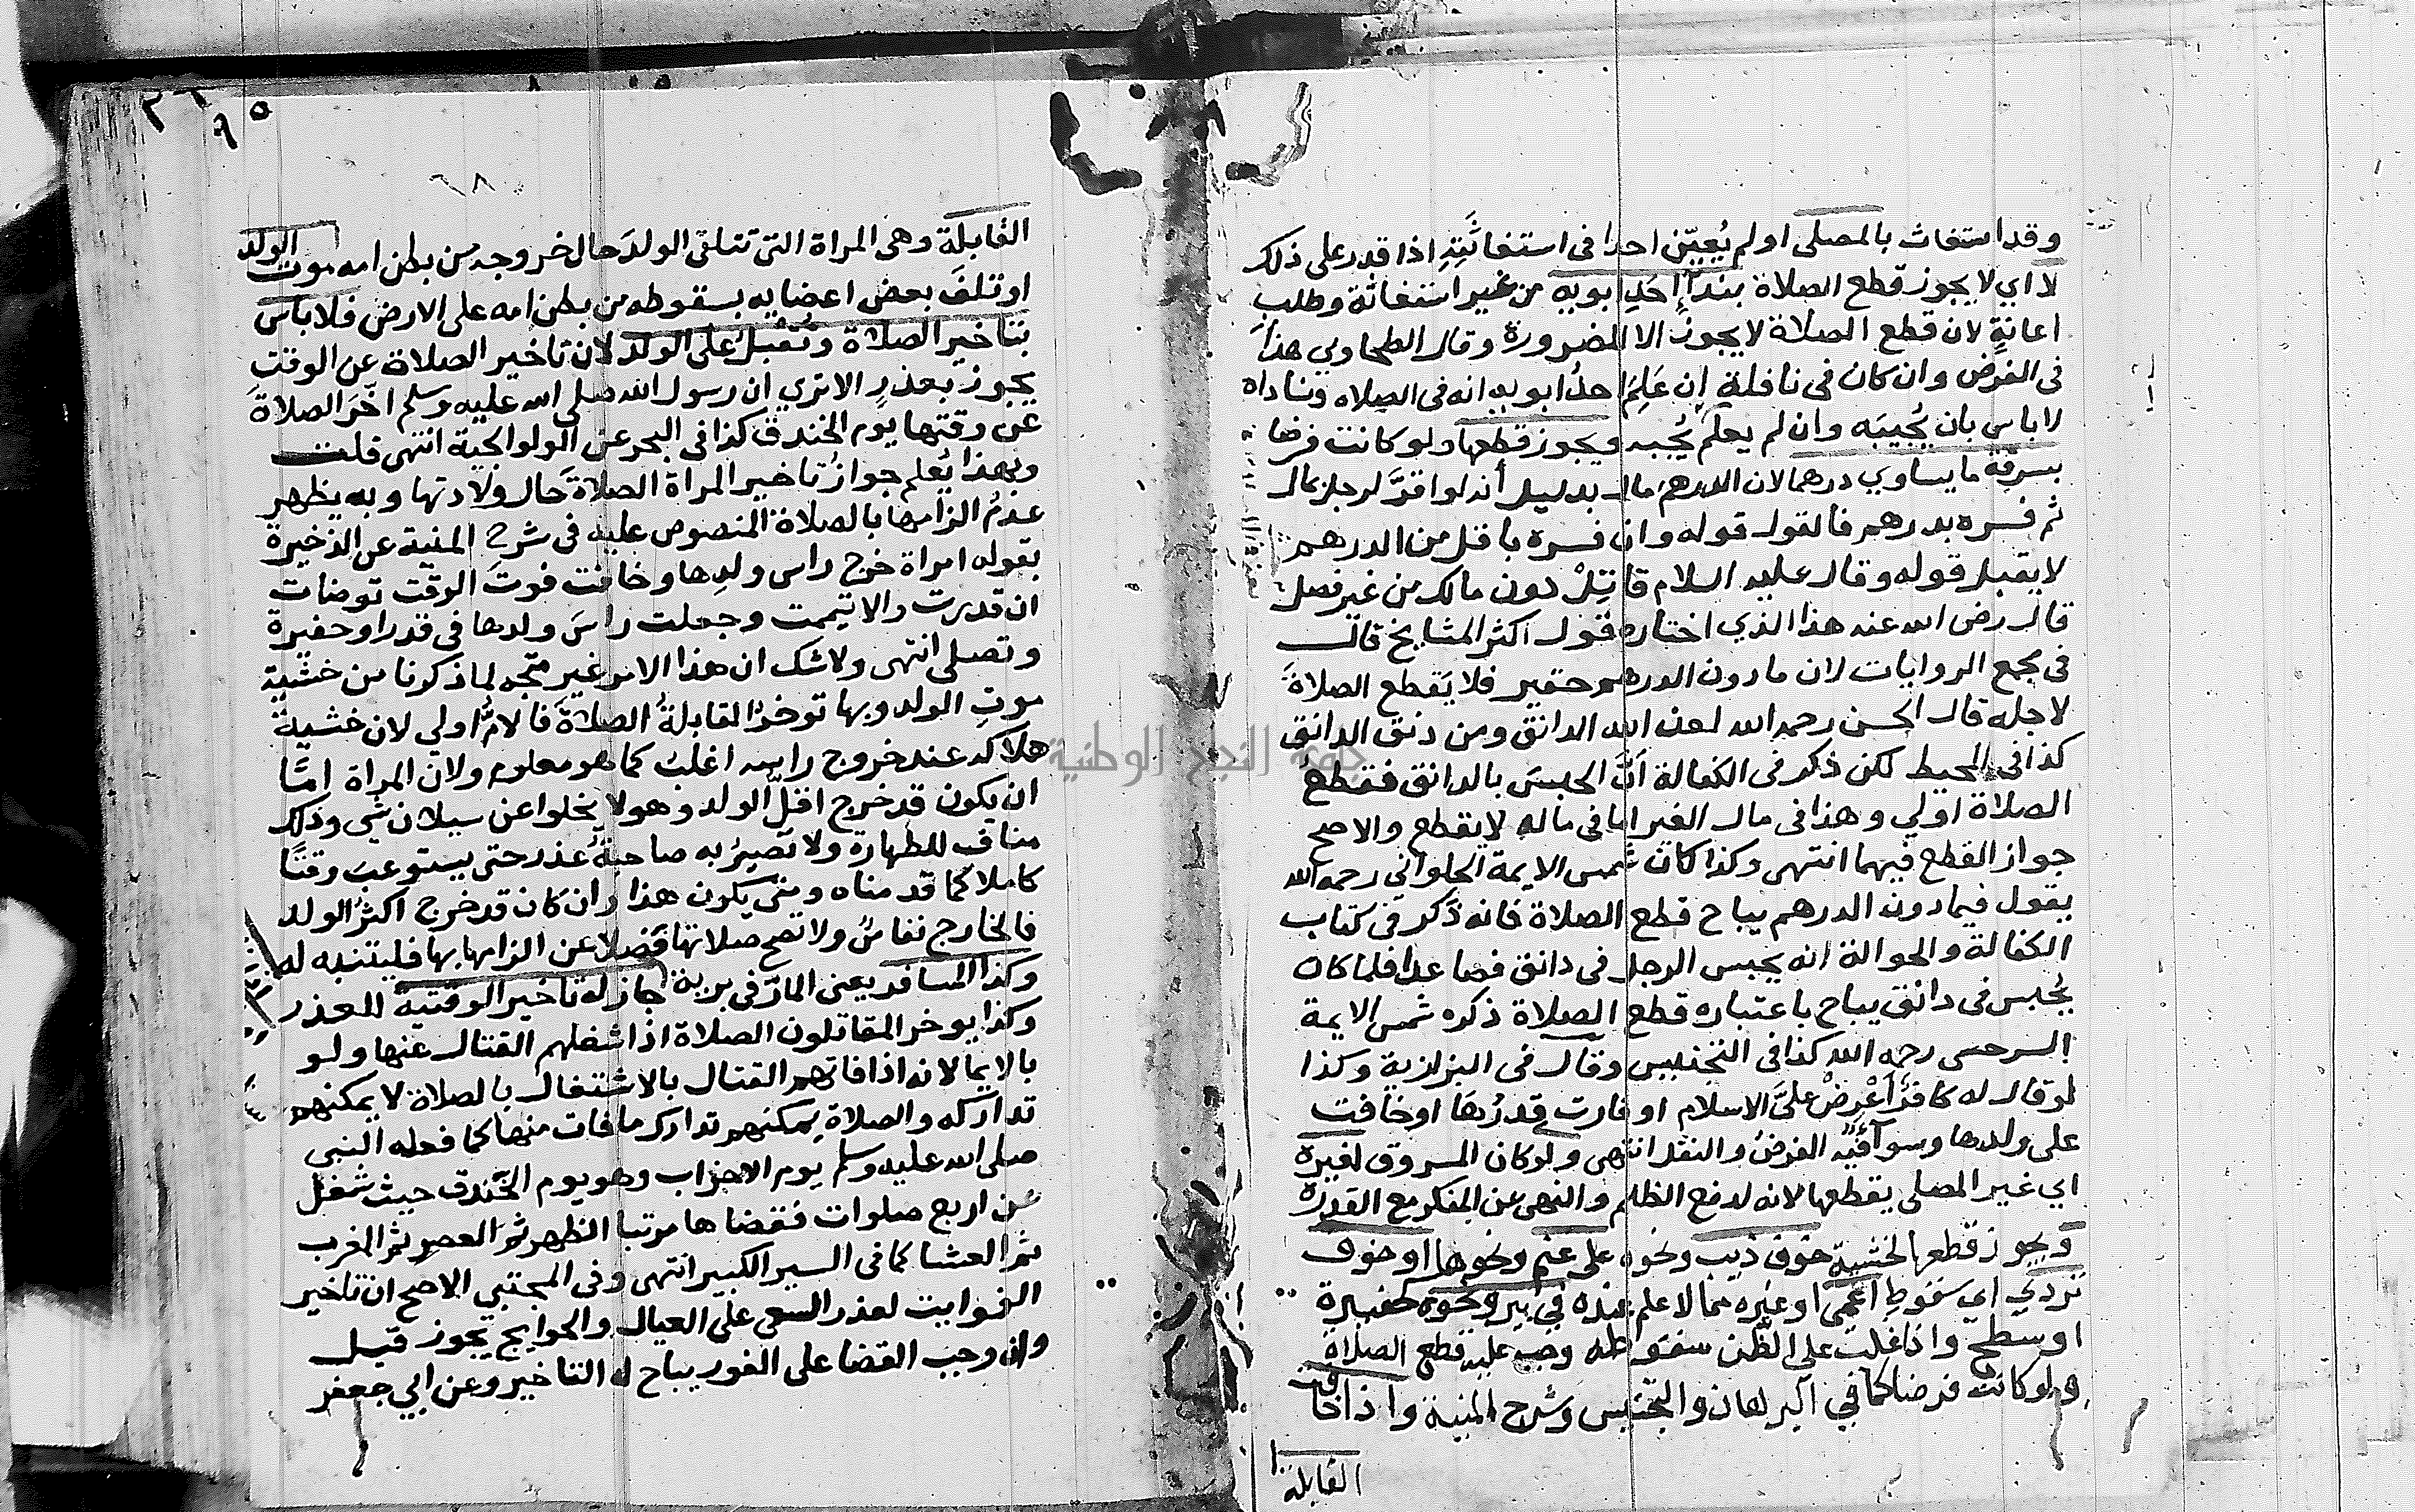 وقد استغاث بالمصلى او لم يُعيّن احدا فى استغاثَتِهِ اذا قدر على ذلك
لا اي لا يجوز قطع الصلاة بنداِ احَدِ ابويه من غير استغاثة وطلبِ
اعانةٍ لان قطع الصلاة لا يجوز الا لضرورة وقال الطحاوي هذا
فى الفرض وان كان فى نافلةٍ إن عَلِمَ احدُ ابويه انه فى الصلاه وناداه
لا باس بان يُجيبَه وان لم يعلم يُجيبه ويجوز قطعها ولو كانت فرضا
بسرقة ما يساوي درهما لان الدرهم مال بدليل أنه لو اقرَّ لرجل بمال
ثم فسره بدرهم فالقول قوله وان فسره باقل من الدرهم
لا يقبل قوله وقال عليه السلام قاتِلْ دون مالك من غير فصل
قال رضى الله عنه هذا الذي اختاره قول اكثر المشايخ قال
فى مجمع الروايات لان ما دون الدرهم حقير فلا يَقطع الصلاةَ
لاجله قال الحسن رحمه الله لعن الله الدانق ومن دنق الدانق
كذا فى المحيط لكن ذكر فى الكفالة انَّ الحبسَ بالدانق فقطع
الصلاة اولي وهذا فى مال الغير اما فى ماله لا يقطع والاصح
جواز القطع فيهما انتهى وكذا كان شمس الايمة الحلوانى رحمه الله
يقول فيما دون الدرهم يباح قطع الصلاة فانه ذكر فى كتاب
الكفالة والحوالة انه يحبس الرجل فى دانق فصاعدا فلما كان
يُحبس فى دانق يباح باعتباره قطع الصلاة ذكره شمس الايمة
السرحسى رحمه الله كذا فى التجنيس وقال فى البزازية وكذا
لو قال له كافرٌ أَعْرِضْ عليَّ الاسلام او فارت قدرُها او خافت
على ولدها وسوآء فيه الفرضُ والنفل انتهى ولو كان المسروق لغيره
اي غير المصلى يقطعها لانه لدفع الظلم والنهى عن المنكر مع القدرة
ويجوز قطعها لخشية خوف ذيب ونحوه على غنم ونحوها او خوف
تردي اى سقوطِ اعمى او غيره ممالا علم عنده فى بير ونحوه كحفيرة
او سطح واذا غلب على الظن سقوطه وجب عليه قطع الصلاة
ولو كانت فرضا كما فى البرهان والتجنيس وشرح المنية واذا خافت
القابلة
القابلة وهى المراة التى تتلقى الولدَ حال خروجه من بطن امه موت الولد
او تلفَ بعض اعضايه بسقوطه من بطن امه على الارض فلا باس
بتاخير الصلاة وتُقْبِلُ على الولد لان تاخير الصلاة عن الوقت
يجوز بعذرٍ الا تري ان رسول الله صلى الله عليه وسلم اخّرَ الصلاةَ
عن وقتها يوم الخندق كذا فى البحر عن الولوالجية انتهى قلت
وبهذا يُعلم جوازُ تاخير المراة الصلاةَ حال ولادتها وبه يظهر
عدمُ الزامها بالصلاة المنصوص عليه فى شرح المنية عن الذخيرة
بقوله امراة خرج راس ولدها وخافت فوتَ الوقت توضات
ان قدرت والا تيممت وجعلت راسَ ولدها فى قدر او حفيرة
وتصلى انتهى ولا شك ان هذا الامر غير متجه لما ذكرنا من خشيةِ
موتِ الولد وبها توخرُ القابلةُ الصلاةَ فالامُّ اولي لان خشيةَ
هلاكه عند خروج راسه اغلبُ كما هو معلوم ولان المراة امّا
ان يكون قد خرج اقلُ الولد وهو لا يخلوا عن سيلان شى وذلك
مناف للطهارة ولا تصيرُ به صاحبةَ عذر حتى يستوعبَ وقتًا
كاملا كما قدمناه ومتى يكون هذا وان كان قد خرج اكثرُ الولد
فالخارج نفاسٌ ولا تصح صلاتها فضلا عن الزامها بها فليتنبه له
وكذا المسافر يعنى المارَّ فى برية جاز له تاخير الوقتية للعذر
وكذا يوخر المقاتلون الصلاة اذا شغلهم القتال عنها ولو
بالايما لانه اذا فاتهم القتال بالاشتغال بالصلاة لا يمكنهم
تداركه والصلاة يمكنهم تدارك ما فات منها كما فعله النبي
صلى الله عليه وسلم يوم الاحزاب وهو يوم الخندق حيث شغل
عن اربع صلوات فقضاها مرتبا الظهر ثم العصر ثم المغرب
ثم العشا كما فى السير الكبير انتهى وفى المجتبي الاصح ان تاخير
الفوايت لعذر السعى على العيال والحوايج يجوز قيل
وان وجب القضا على الفور يباح له التاخير وعن ابي جعفر
جامعة النجاح الوطنية